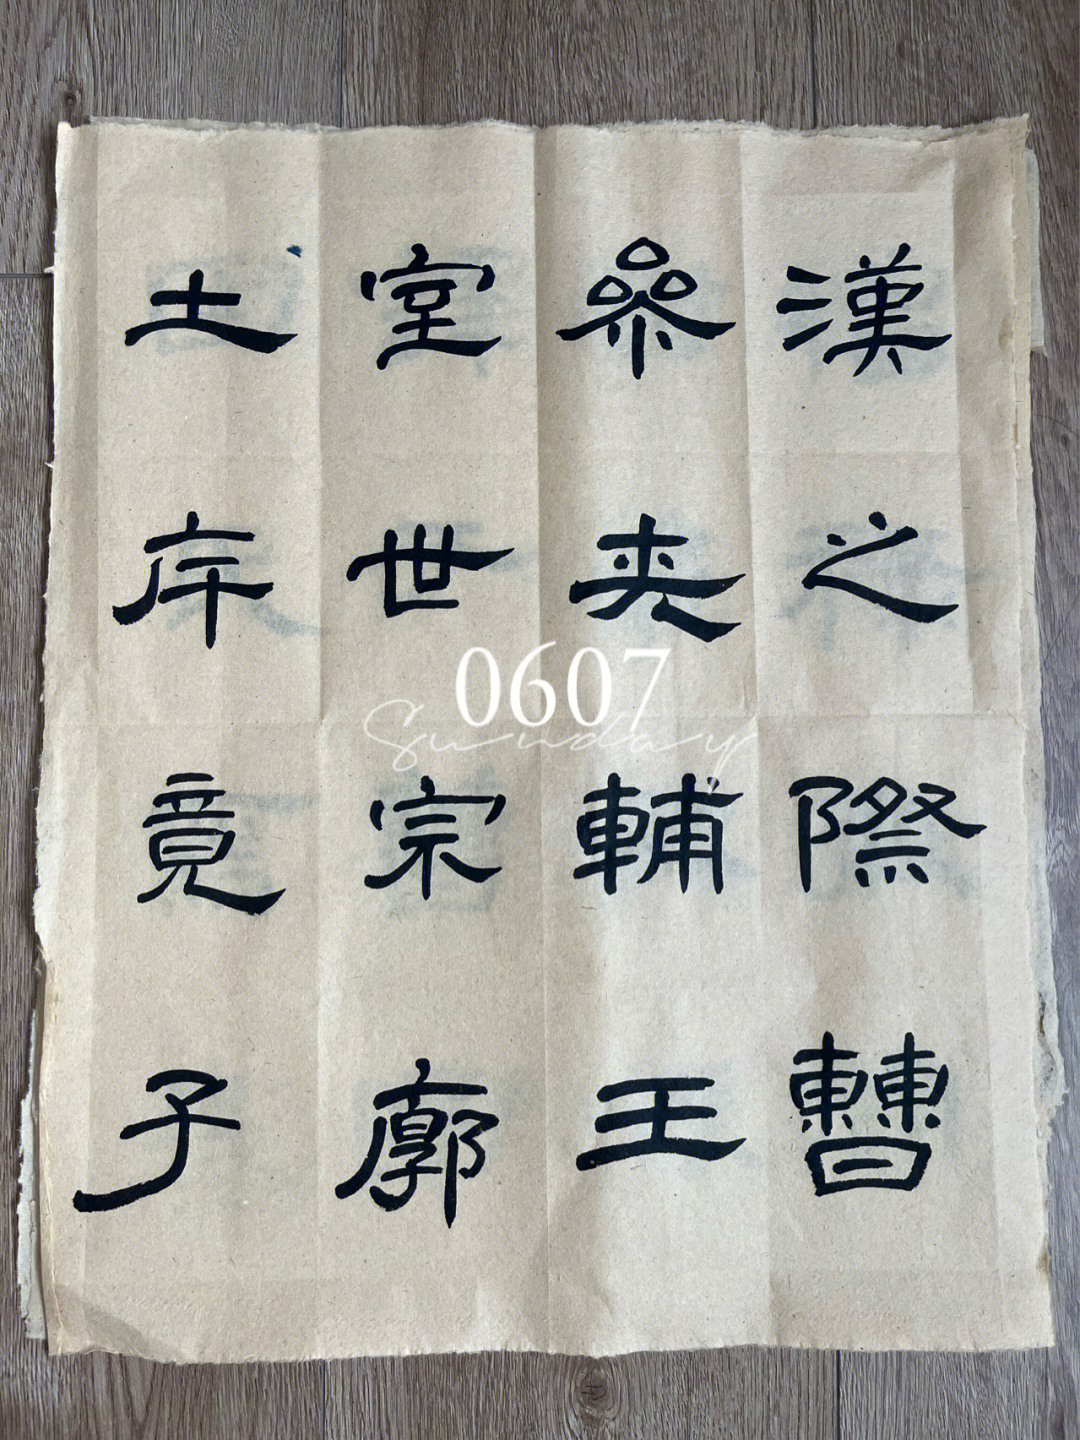 漢之際曹
參夾輔王
室世宗廓
土斥竟子
0607
Sunday